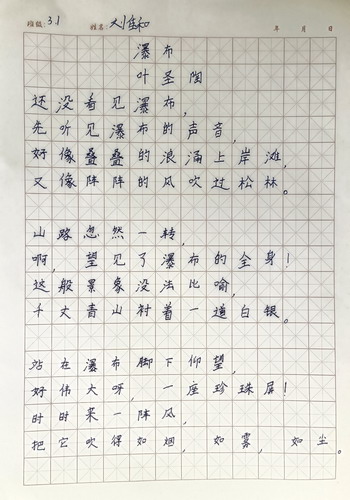 班级：31 姓名：刘和 年 月 日
瀑布
叶圣陶
还没看见瀑布，
先听见瀑布的声音，
好像叠叠的浪涌上岸滩，
又像阵阵的风吹过松林。
山路忽然一转，
啊，望见了瀑布的全身！
这般景象没法比喻，
千丈青山衬着一道白银。
站在瀑布脚下仰望，
好伟大呀，一座珍珠屏！
时时来一阵风，
把它吹得如烟，如雾，如尘。